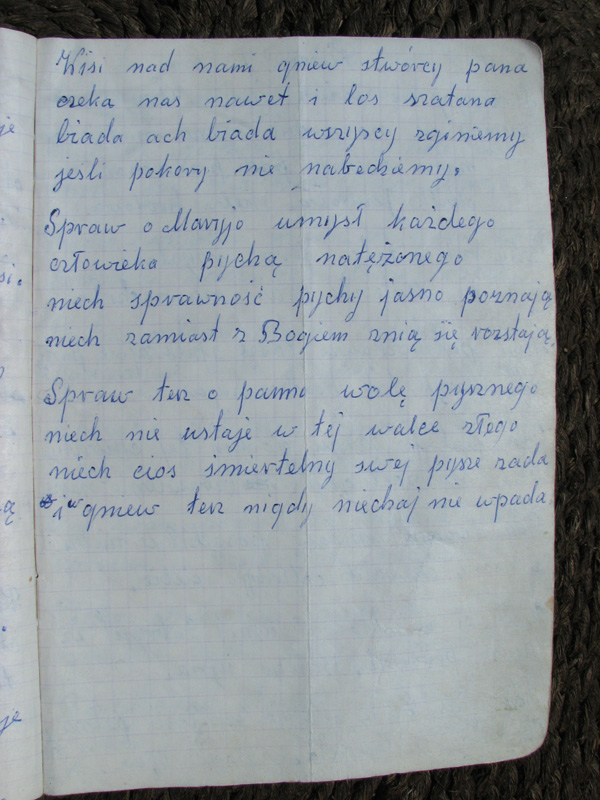 Wisi nad nami gniew stwórcy pana
czeka nas nawet i los szatana
biada ach biada wszyscy zginiemy
jeśli pokory nie nabedziemy.
Spraw o Maryjo umysł każdego
człowieka pychą natężonego
niech sprawność pychy jasno poznają
niech zamiast z Bogiem znią się rozstają,
Spraw tez o panno wolę pysznego
niech nie ustaje w tej walce złego
niech cios śmiertelny swej pysze zada
i w gniew tez nigdy niechaj nie wpada